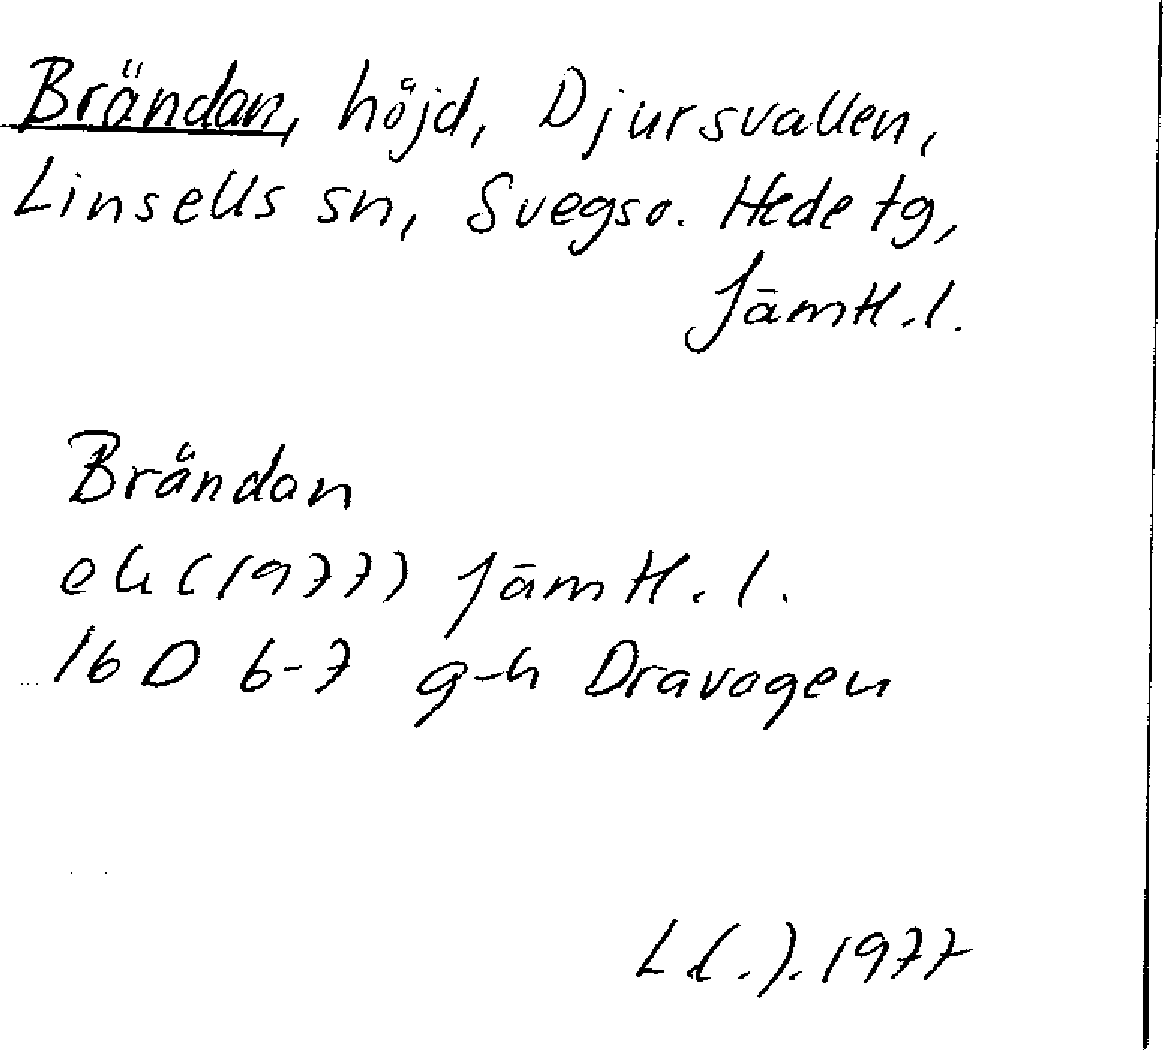 Brändan, höjd, Djursvallen,
Linsells sn, Svegs o. Hede tg,
Jämtl. l.
Brändan
ek (1977) Jämtl. l.
16 D 6-7 g-h Dravagen
L.(.). 1977